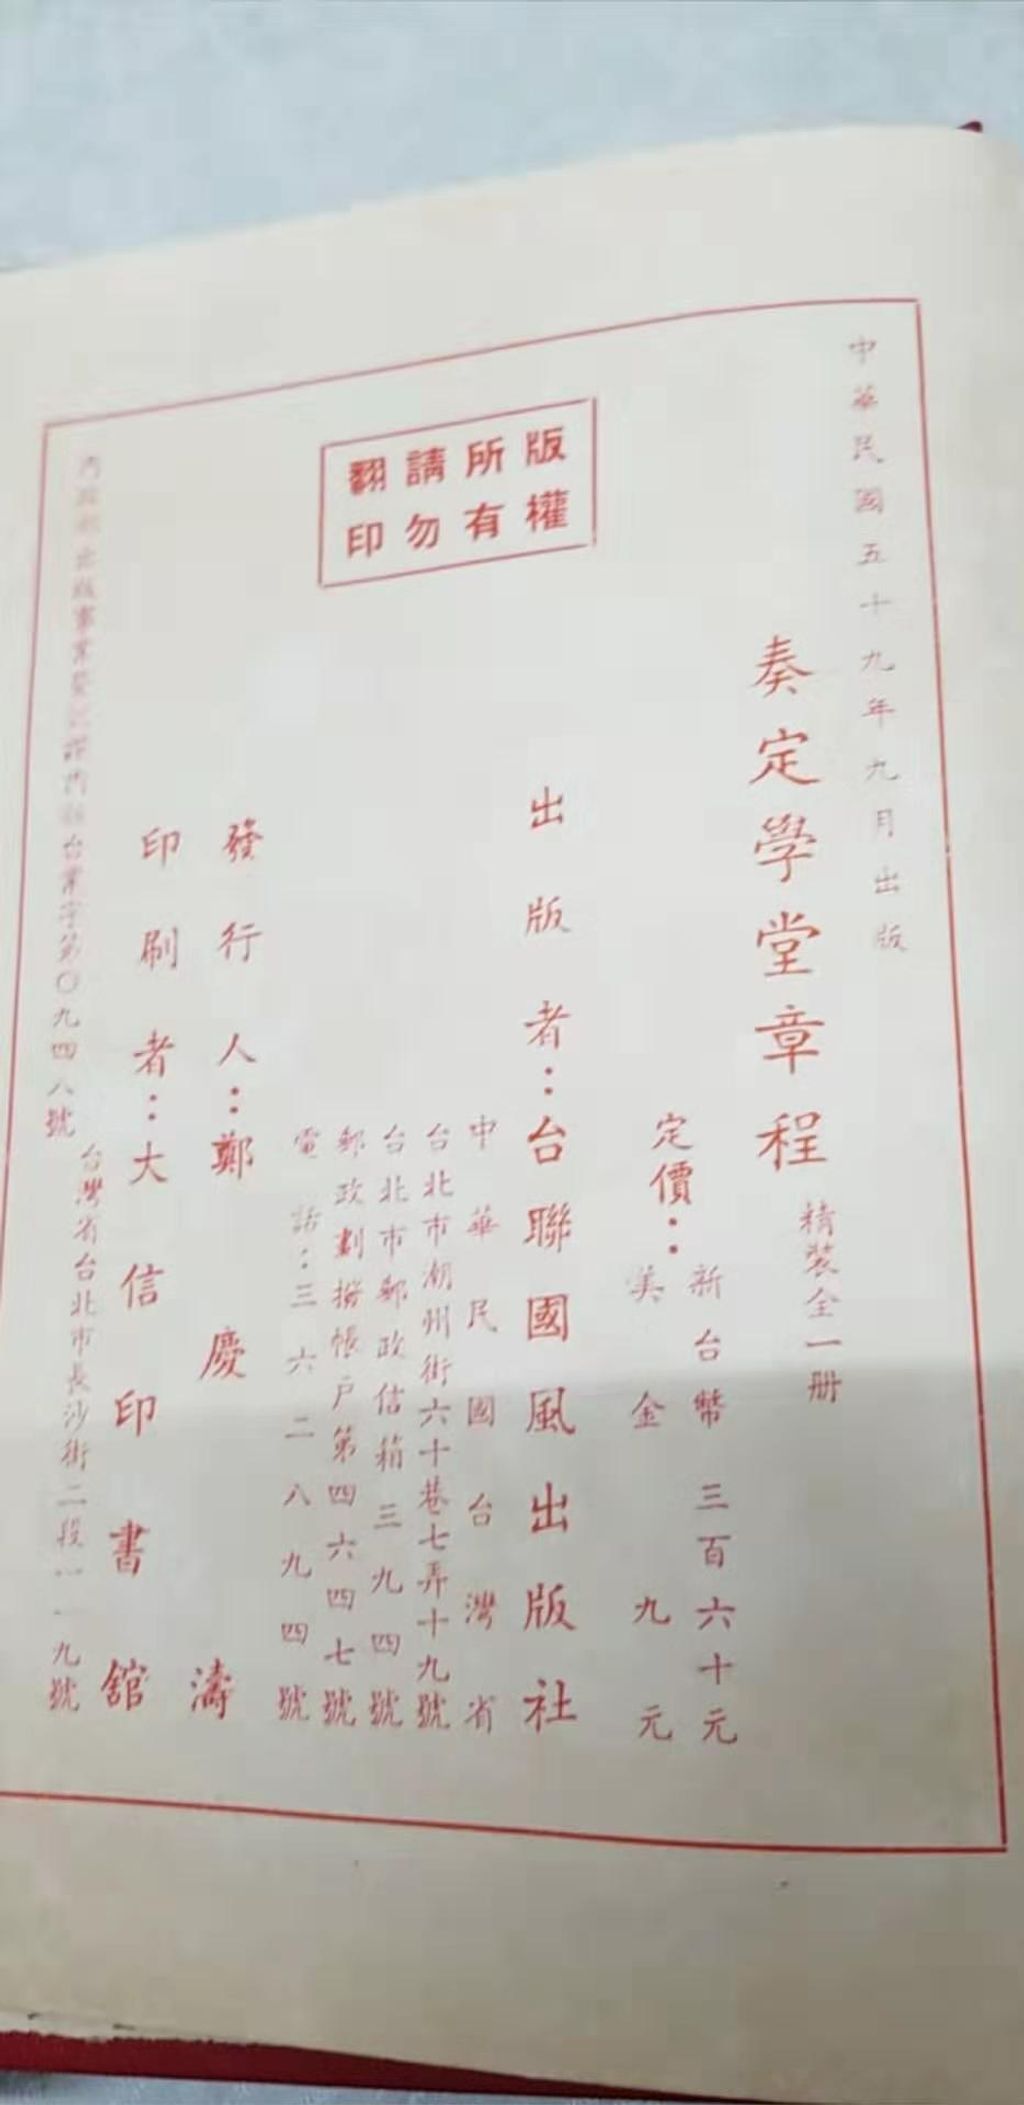 中華民國五十九年九月出版
奏定學堂章程 精裝全一册
定價：
新台幣 三百六十元
美金 九元
出版者：台聯國風出版社
中華民國台灣省
台北市潮州街六十巷七弄十九號
台北市郵政信箱三九四號
郵政劃撥帳戶第四六四七號
電話：三六二八九四號
發行人：鄭慶濤
印刷者：大信印書館
台灣省台北市長沙街二段一一九號
內政部出版事業登記證內版台業字第〇九四八號
版權所有
請勿翻印